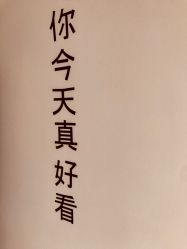 你今天真好看